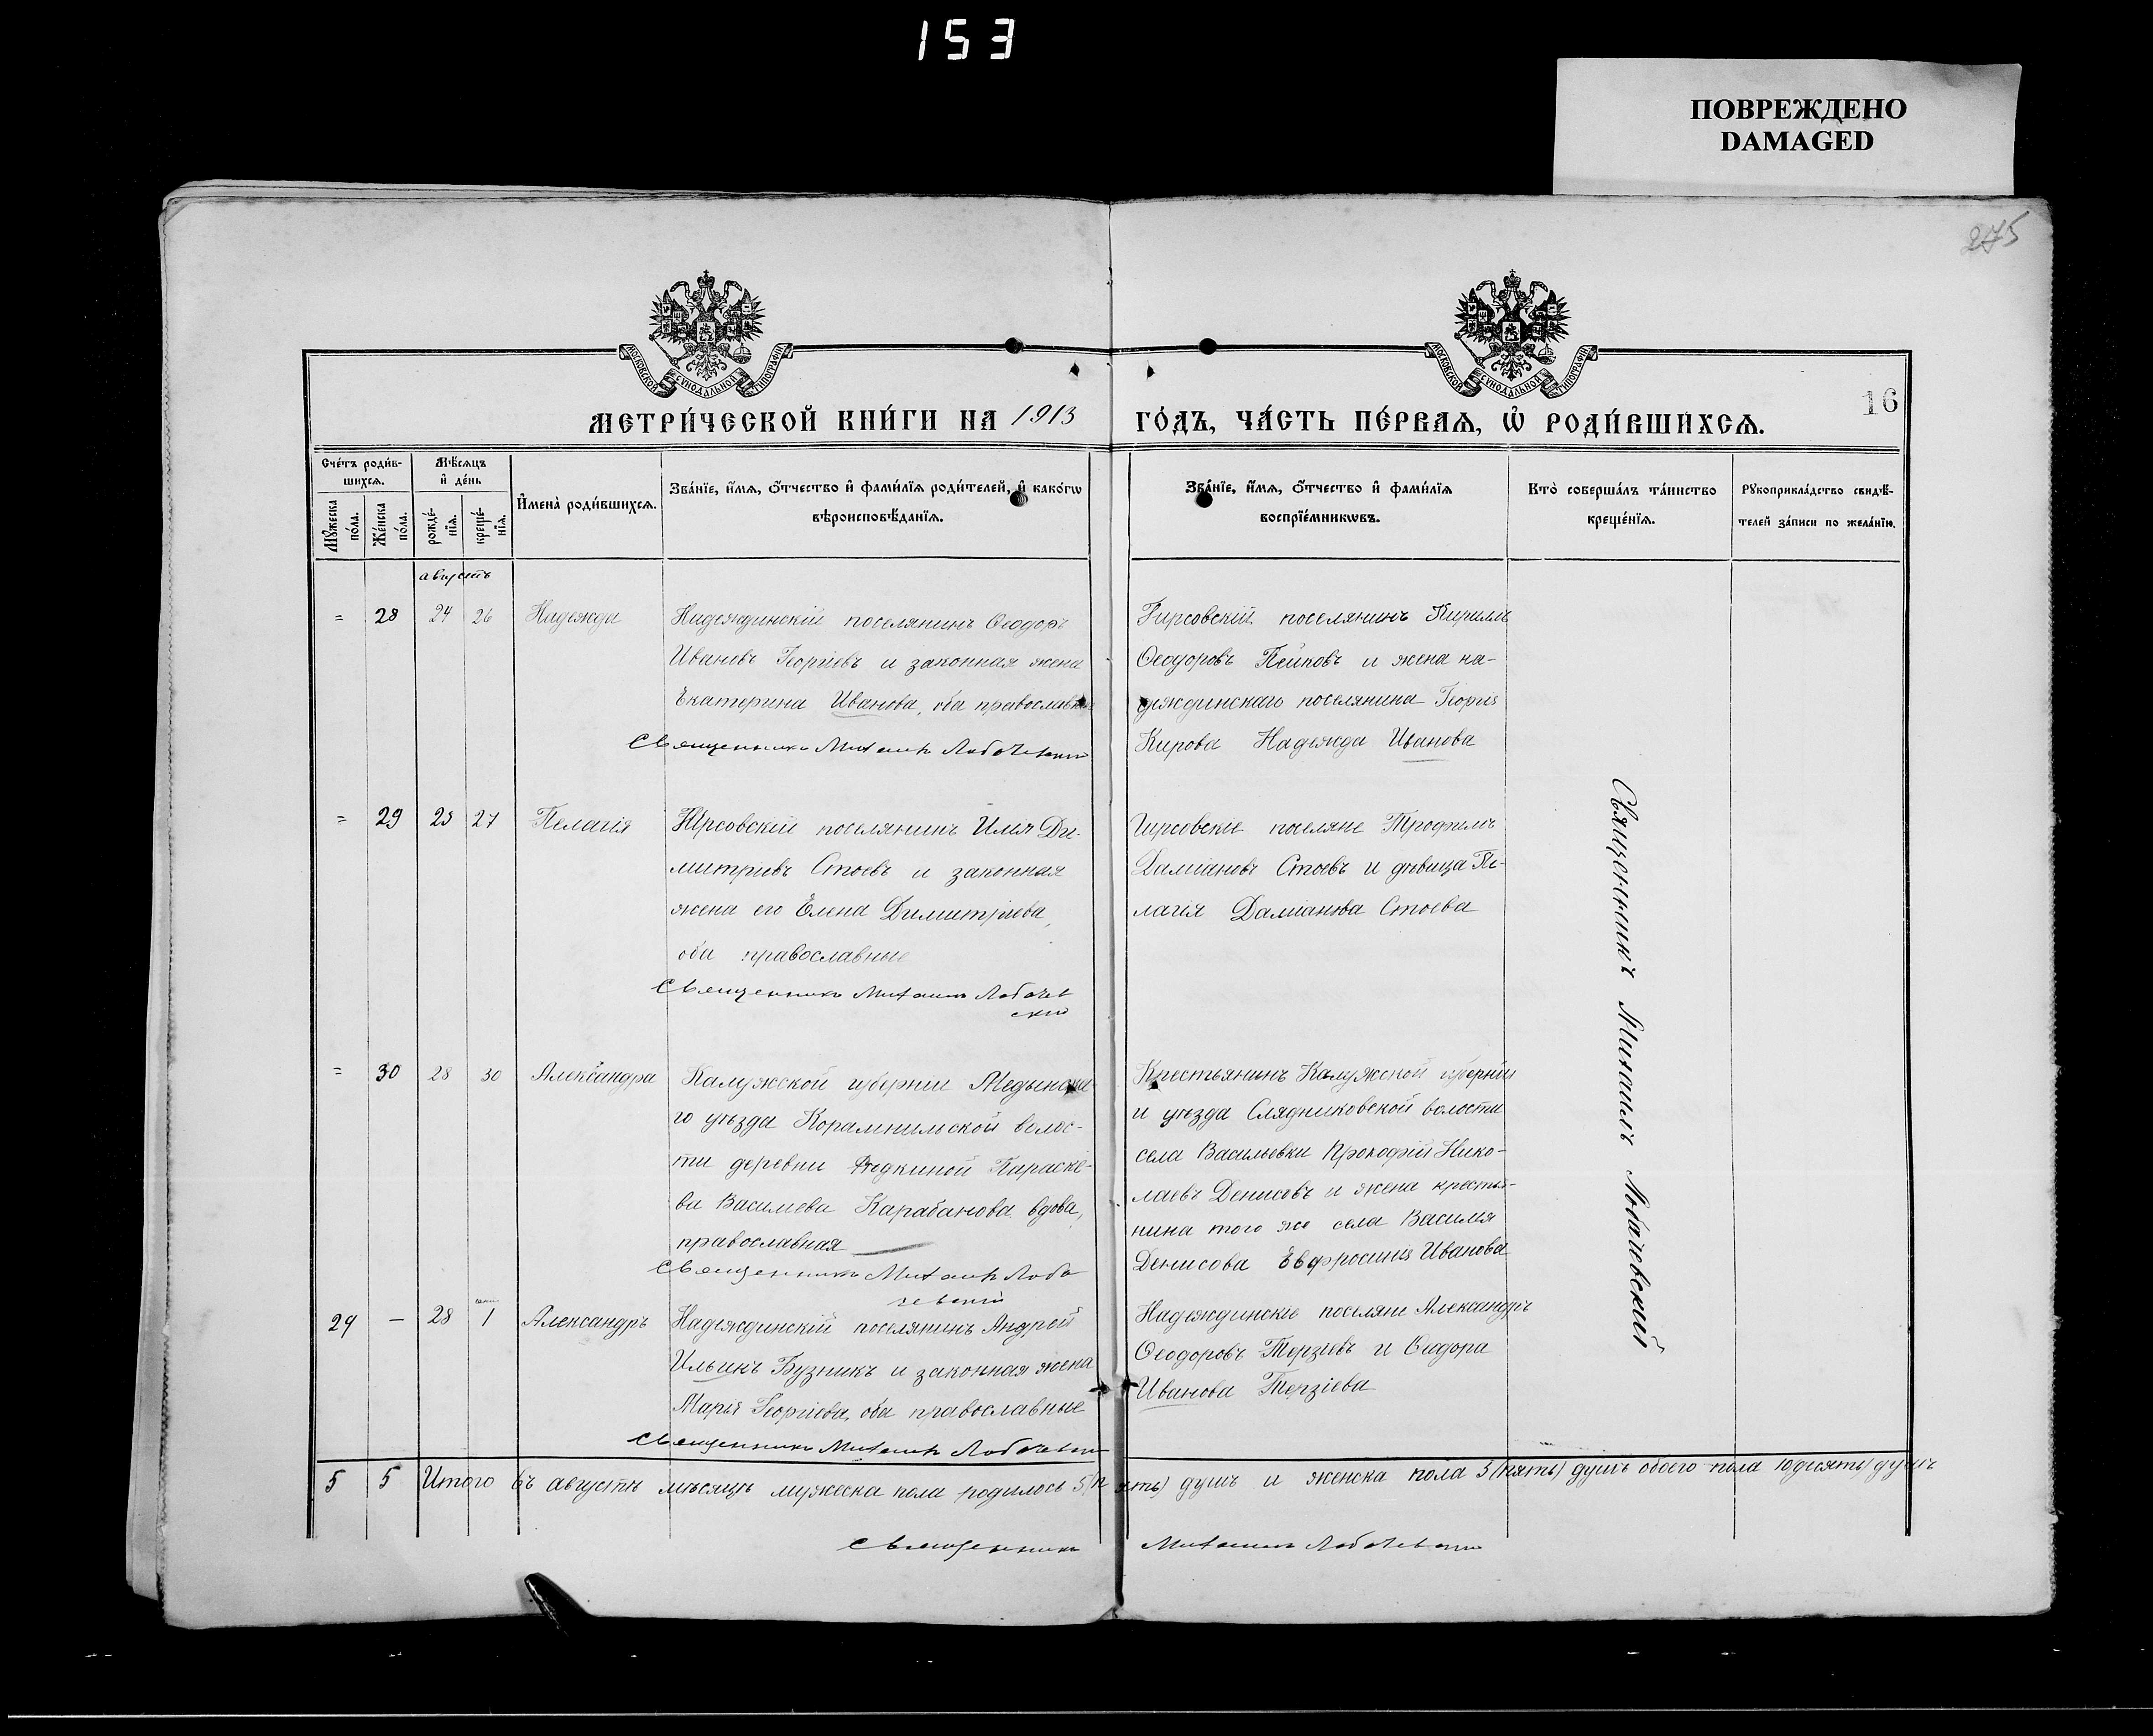 153
ПОВРЕЖДЕНО
DAMAGED
275
МОСКОВСКОЙ СѴНОДАЛЬНОЙ ТИПОГРАФІИ
МОСКОВСКОЙ СѴНОДАЛЬНОЙ ТИПОГРАФІИ
16
МЕТРИ́ЧЕСКОЙ КНИ́ГИ НА 1913 ГО́ДЪ, ЧА́СТЬ ПЕ́РВАѦ, Ѡ҆ РОДИ́ВШИХСѦ.
Сче́тъ роди́в-
шихсѧ.
Мꙋ́жеска по́ла.
Же́нска по́ла.
Мѣ́сѧцъ
и҆ де́нь
рожде́-
нїѧ.
креще́-
нїѧ.
И҆мена̀ роди́вшихсѧ.
Зва́нїе, и҆́мѧ, ѻ҆́тчество и҆ фами́лїѧ роди́телей, и҆ како́гѡ
вѣроисповѣ́данїѧ.
Зва́нїе, и҆́мѧ, ѻ҆́тчество и҆ фами́лїѧ
воспрїе́мникѡвъ.
Кто̀ соверша́лъ та́инство
креще́нїѧ.
Рꙋкоприкла́дство свидѣ́-
телей за́писи по жела́нїю.
августъ
= 28 24 26 Надежда
Надеждинскій поселянинъ Ѳеодоръ
Ивановъ Георгіевъ и законная жена
Екатерина Иванова, оба православные
Священникъ Михаилъ Лобачевскій
Гирсовскій поселянинъ Кириллъ
Ѳеодоровъ Пейковъ и жена на-
деждинскаго поселянина Георгія
Кирова Надежда Иванова
= 29 25 27 Пелагія
Гирсовскій поселянинъ Илія Ди-
митріевъ Стоевъ и законная
жена его Елена Димитріева,
оба православные
Священникъ Михаилъ Лобачев
скій
Гирсовскіе поселяне Трофимъ
Даміановъ Стоевъ и дѣвица Пе-
лагія Даміанова Стоева
= 30 28 30 Александра
Калужской губерніи Медынска-
го уѣзда Корамышльской волос-
ти деревни Ѳедкиной Параске-
ва Василіева Карабанова вдова,
православная
Священникъ Михаилъ Лоба
чевскій
Крестьянинъ Калужской губерніи
и уѣзда Слядниковской волости
села Васильевки Прокофій Нико-
лаевъ Денисовъ и жена крестья-
нина того же села Василія
Денисова Евфросинія Иванова
29 — 28 1 Александръ
Надеждинскій поселянинъ Андрей
Ильинъ Бузникъ и законная жена
Марія Георгіева, оба православные
Священникъ Михаилъ Лобачевскій
Надеждинскіе поселяне Александръ
Ѳеодоровъ Терзіевъ и Ѳеодора
Иванова Терзіева
Священникъ Михаилъ Лобачевскій
5 5 Итого въ августѣ мѣсяцѣ мужеска пола родилось 5 (пять) душъ и женска пола 5 (пять) душъ обоего пола 10 (десять) душъ
Священникъ Михаилъ Лобачевскій